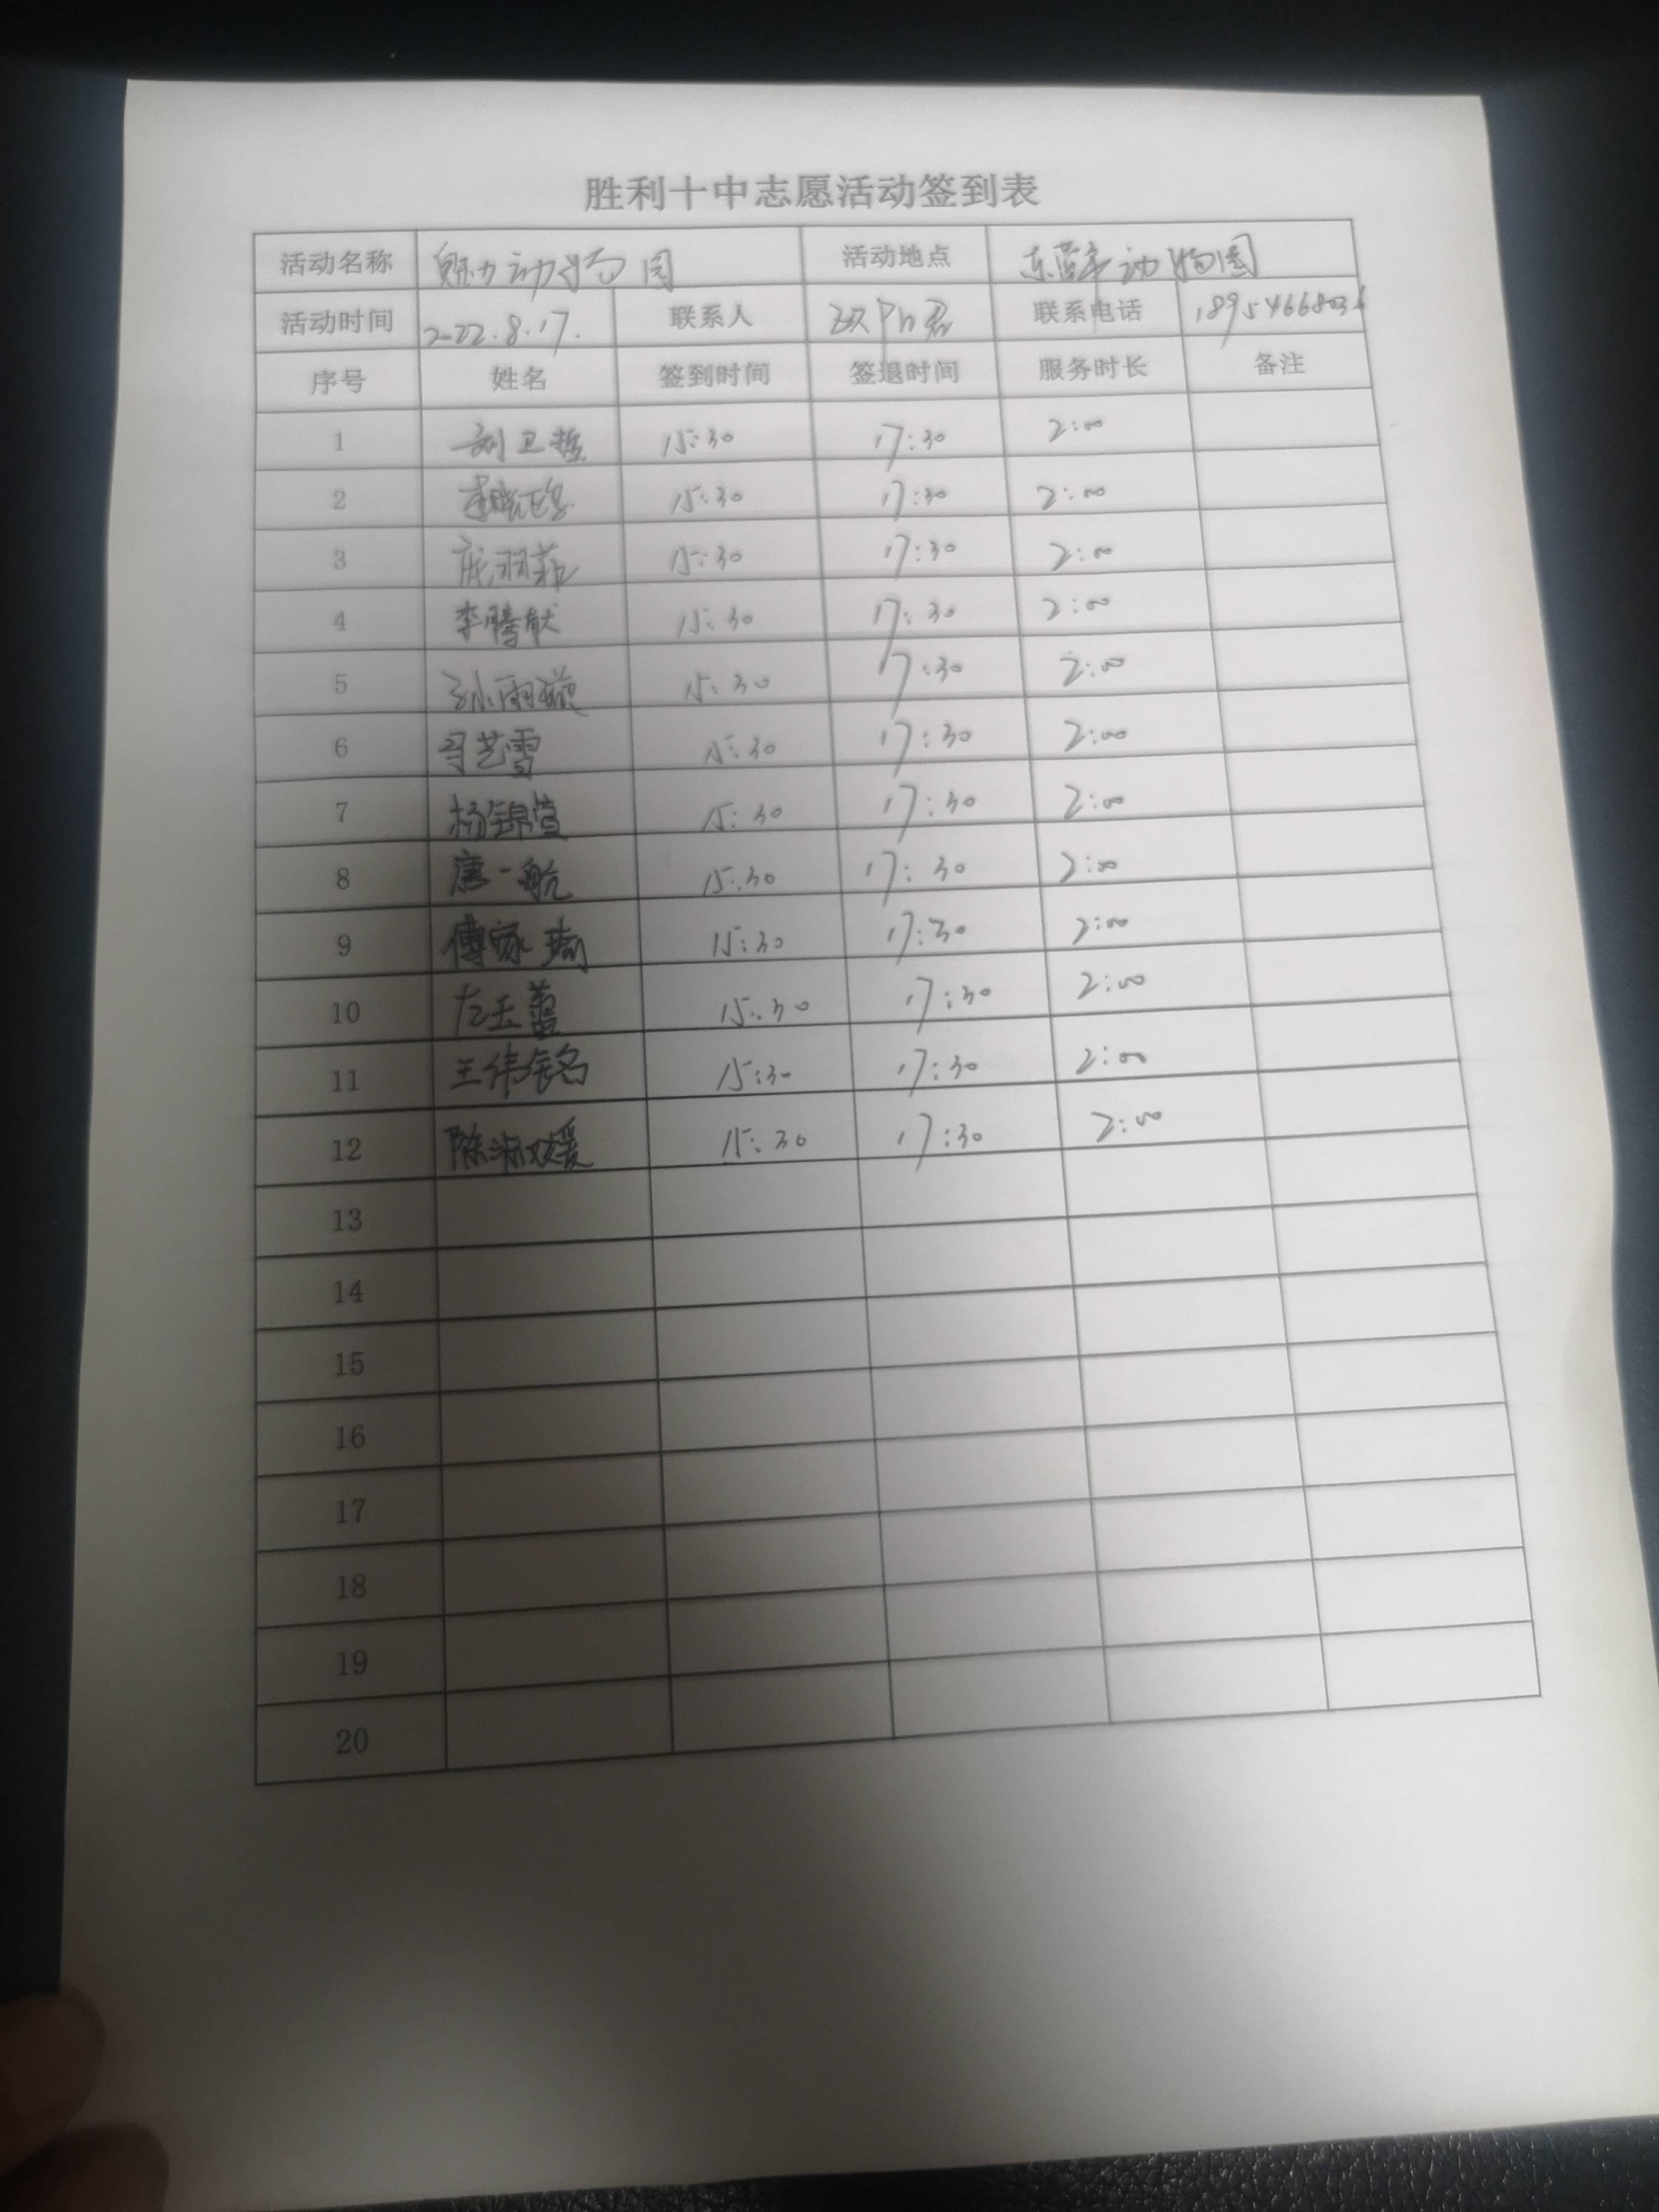 胜利十中志愿活动签到表
活动名称 魅力动物园 活动地点 东营市动物园
活动时间 2022.8.17. 联系人 联系电话 18954668036
序号 姓名 签到时间 签退时间 服务时长 备注
1 刘卫哲 15:30 17:30 2:00
2 15:30 17:30 2:00
3 庞羽菲 15:30 17:30 2:00
4 李腾献 15:30 17:30 2:00
5 孙雨璇 15:30 17:30 2:00
6 艺雪 15:30 17:30 2:00
7 杨锦萱 15:30 17:30 2:00
8 唐一航 15:30 17:30 2:00
9 傅家瑞 15:30 17:30 2:00
10 左玉蕾 15:30 17:30 2:00
11 王伟铭 15:30 17:30 2:00
12 陈淑媛 15:30 17:30 2:00
13
14
15
16
17
18
19
20